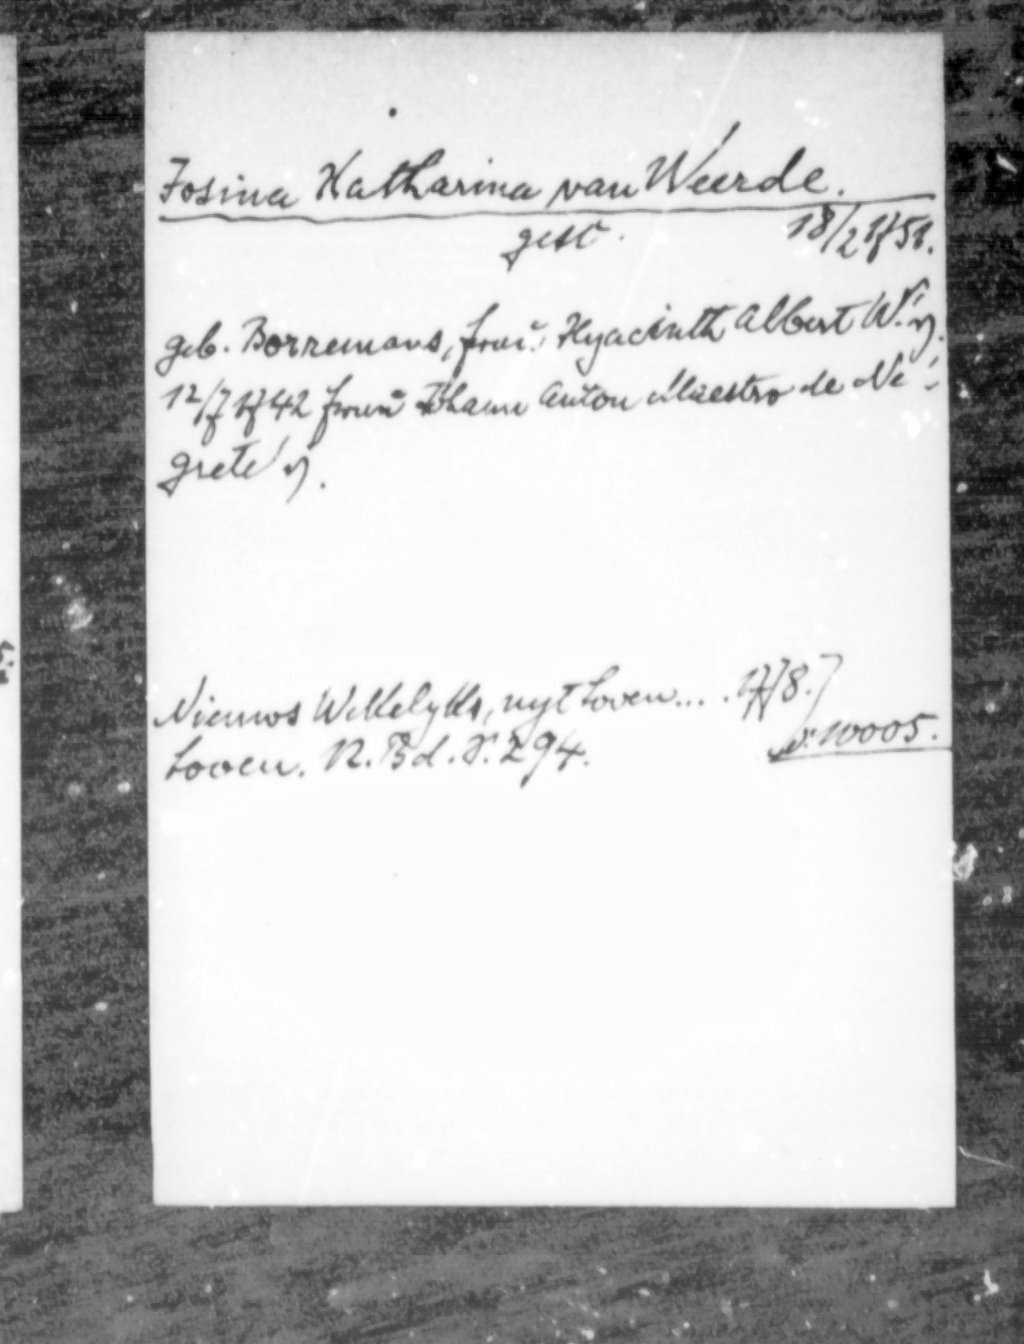 Josina Katharina van Weerde.
gest. 18/2 1751.
geb. Borremans, frau v. Hyacinth Albert W.
12/7 1742 frau v. Anton Maestro de Ne-
grete
Nieuws Wekelyks, uyt Loven.... 1778.
Loven. R. Bd. S. 294. v. 10005.